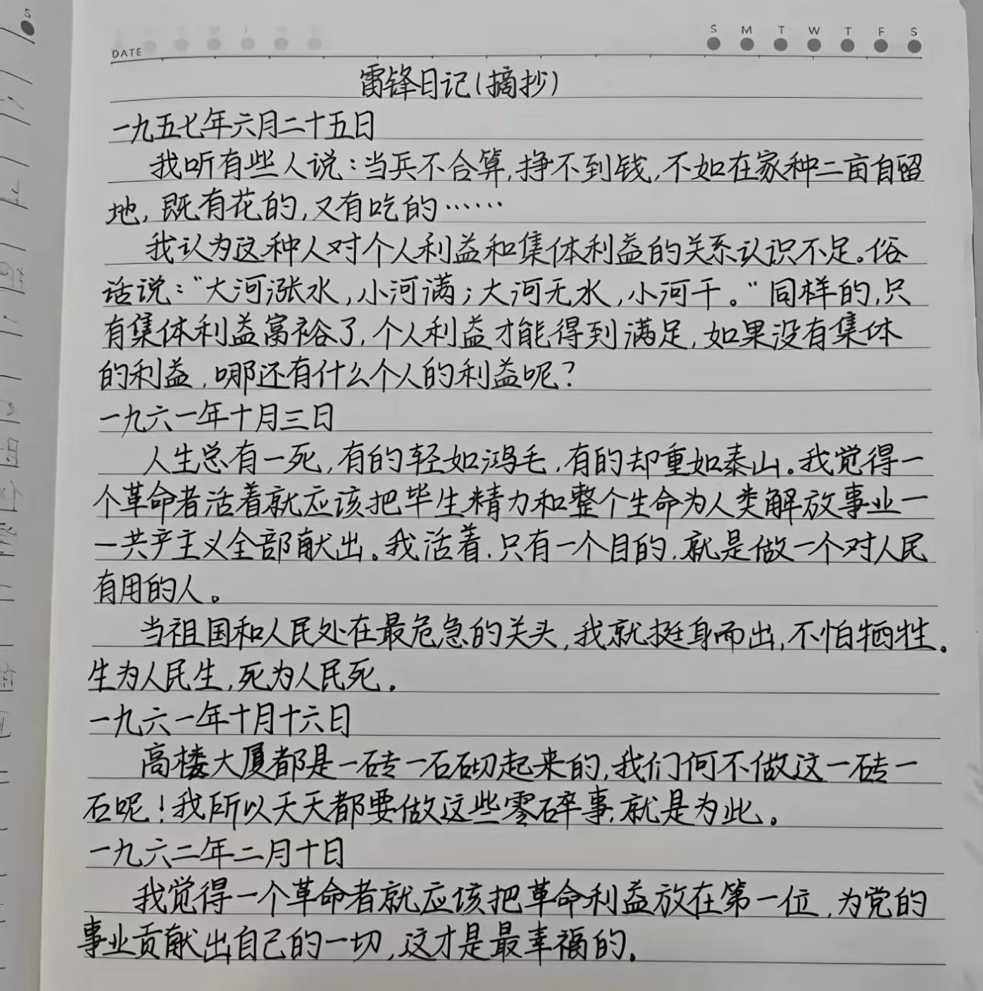 DATE
S M T W T F S
雷锋日记(摘抄)
一九五七年六月二十五日
我听有些人说:当兵不合算,挣不到钱,不如在家种二亩自留
地,既有花的,又有吃的……
我认为这种人对个人利益和集体利益的关系认识不足。俗
话说:“大河涨水,小河满;大河无水,小河干。”同样的,只
有集体利益富裕了,个人利益才能得到满足,如果没有集体
的利益,哪还有什么个人的利益呢?
一九六一年十月三日
人生总有一死,有的轻如鸿毛,有的却重如泰山。我觉得一
个革命者活着就应该把毕生精力和整个生命为人类解放事业一
一共产主义全部献出。我活着,只有一个目的,就是做一个对人民
有用的人。
当祖国和人民处在最危急的关头,我就挺身而出,不怕牺牲。
生为人民生,死为人民死。
一九六一年十月十六日
高楼大厦都是一砖一石砌起来的,我们何不做这一砖一
石呢!我所以天天都要做这些零碎事,就是为此。
一九六二年二月十日
我觉得一个革命者就应该把革命利益放在第一位,为党的
事业贡献出自己的一切,这才是最幸福的。